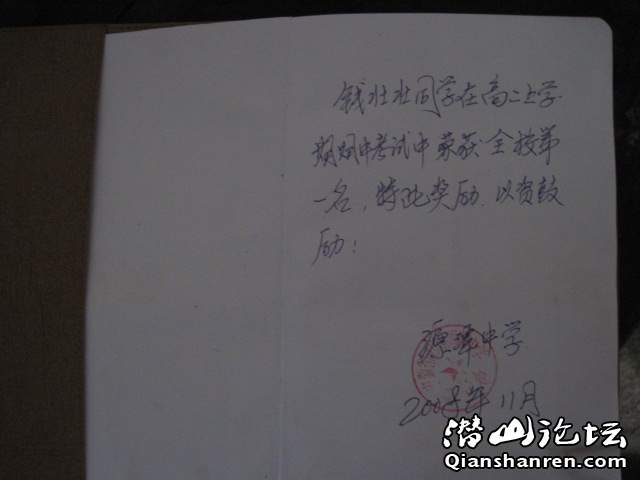 钱壮壮同学在高二上学
期期中考试中荣获全校第
一名，特此奖励，以资鼓
励！
源潭中学
2008年11月
潜山论坛
Qianshanren.com